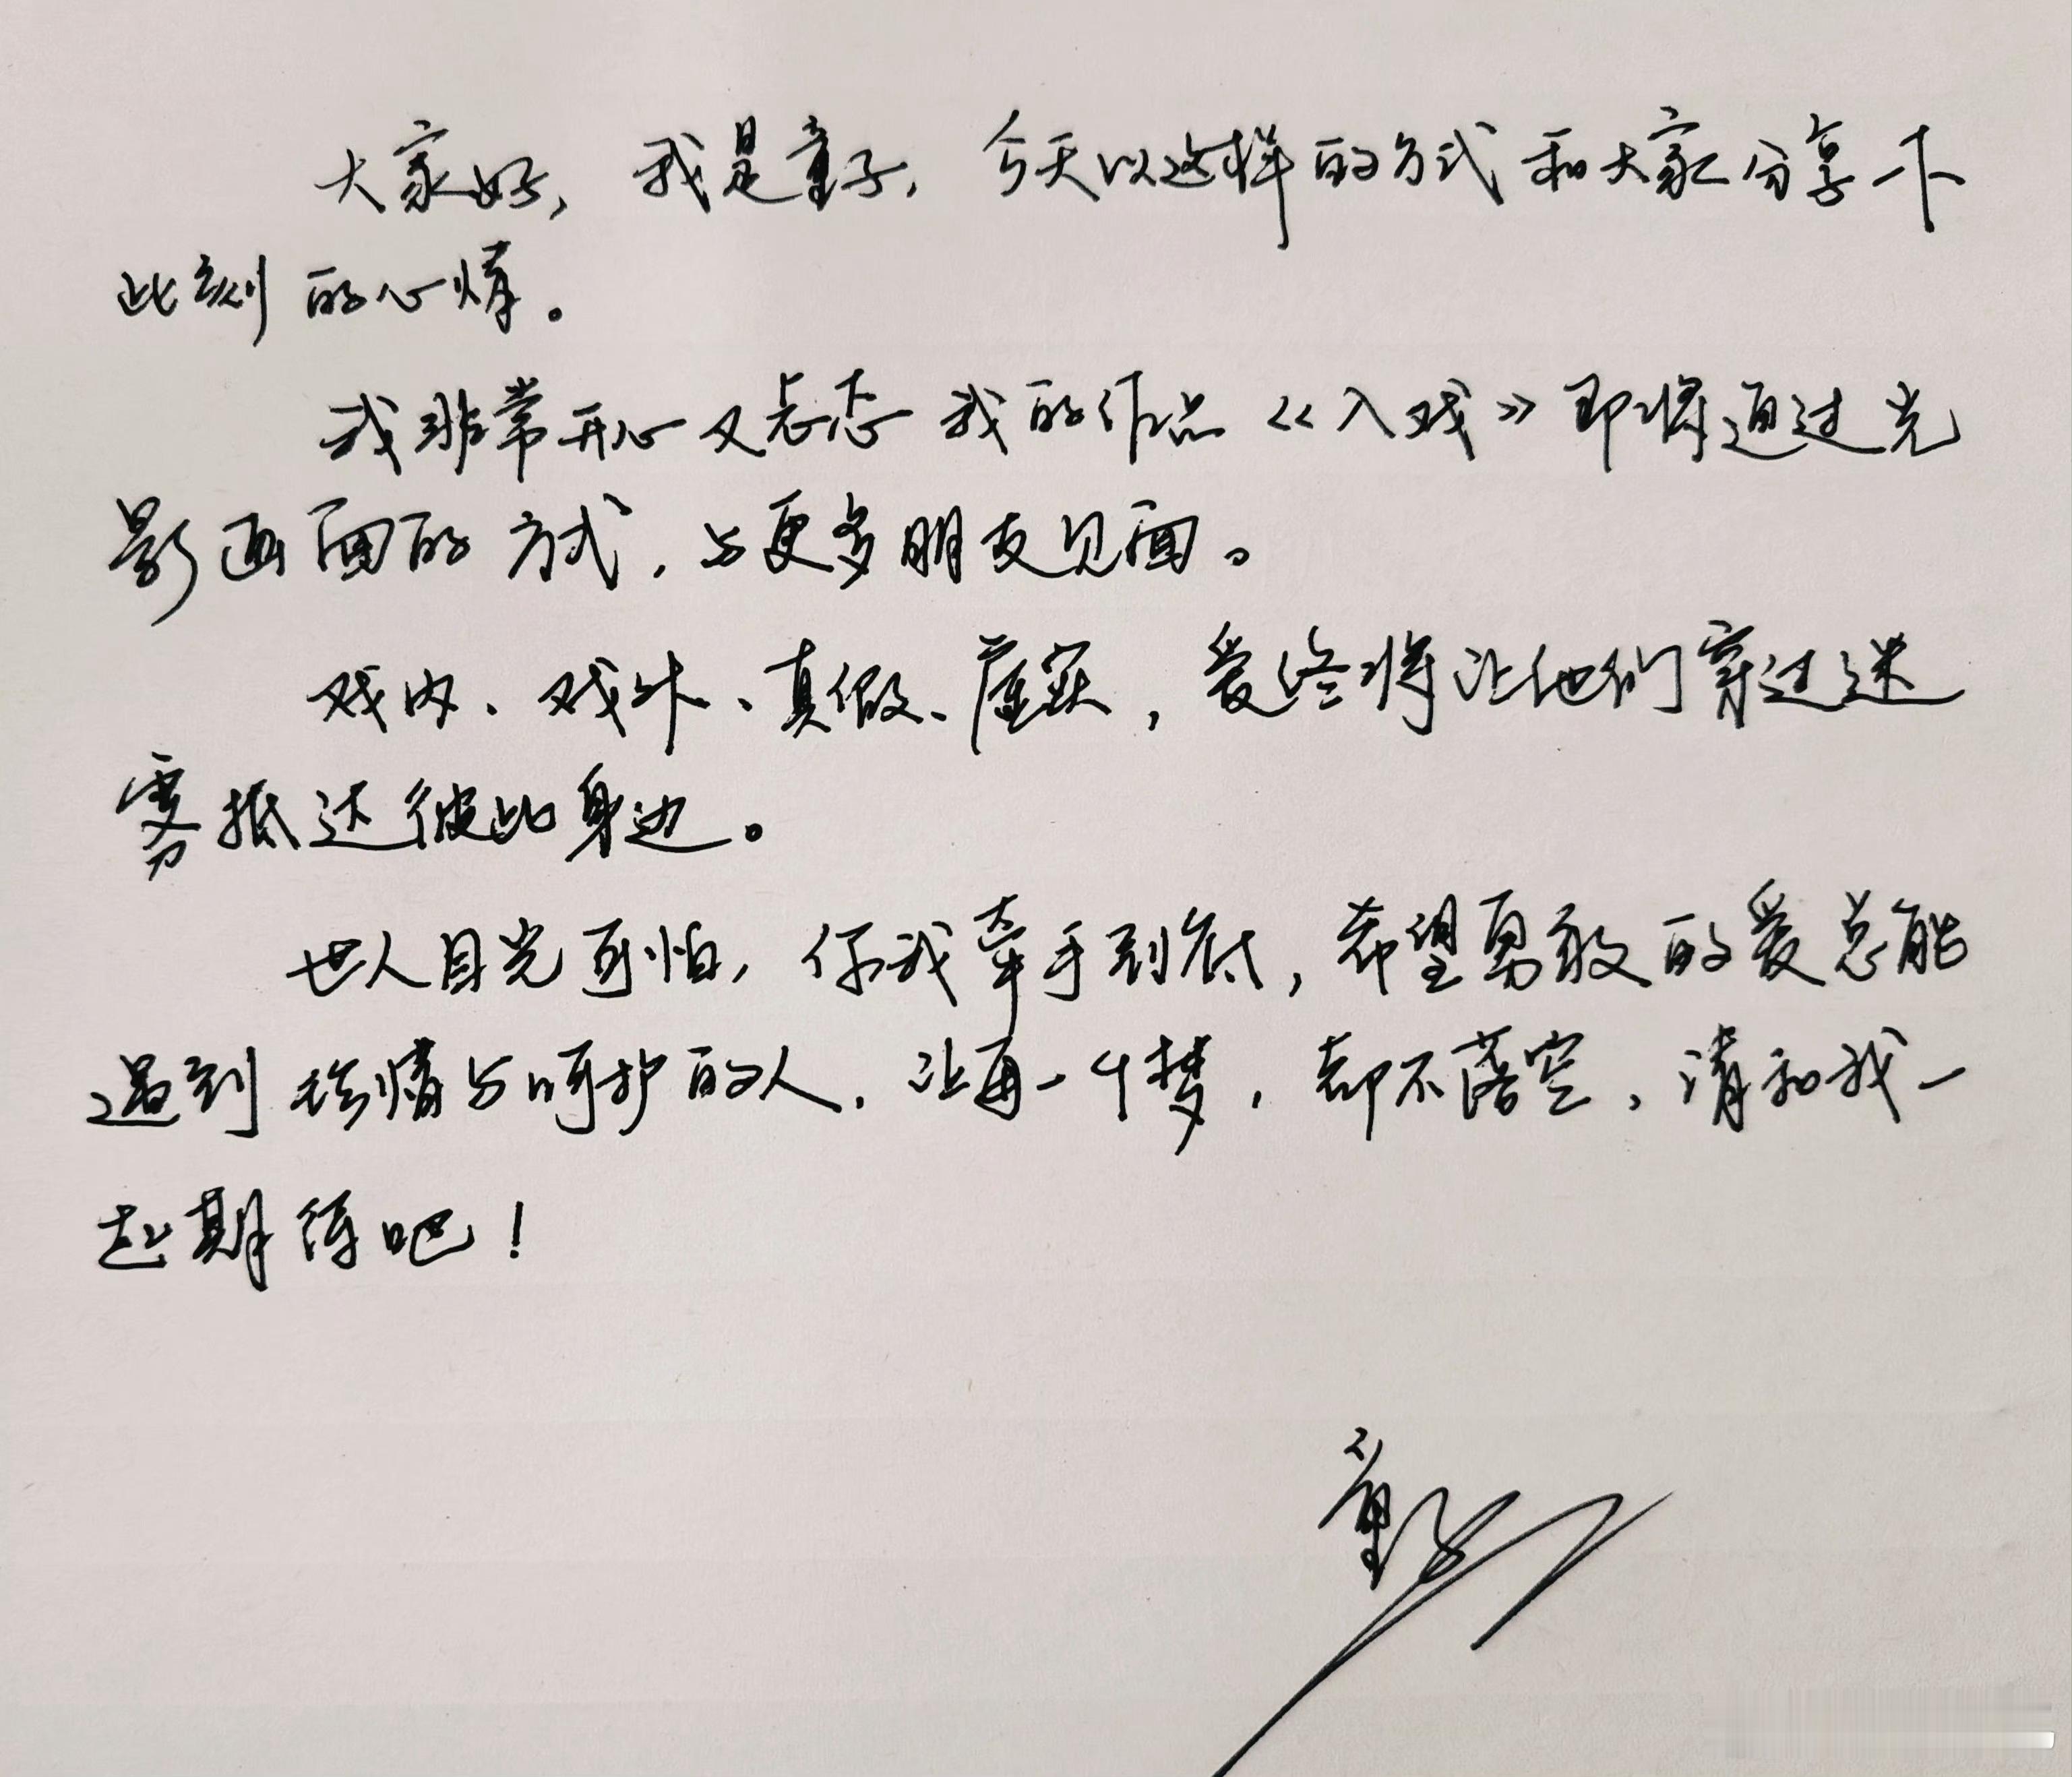 大家好，我是童子，今天以这样的方式和大家分享一下
此刻的心情。
我非常开心又忐忑我的作品《入戏》即将通过光
影画面的方式，与更多朋友见面。
戏内、戏外、真假、虚实，爱终将让他们穿过迷
雾抵达彼此身边。
世人目光可怕，你我牵手到底，希望勇敢的爱总能
遇到珍惜与呵护的人，让每一个梦，都不落空，请和我一
起期待吧！
童子